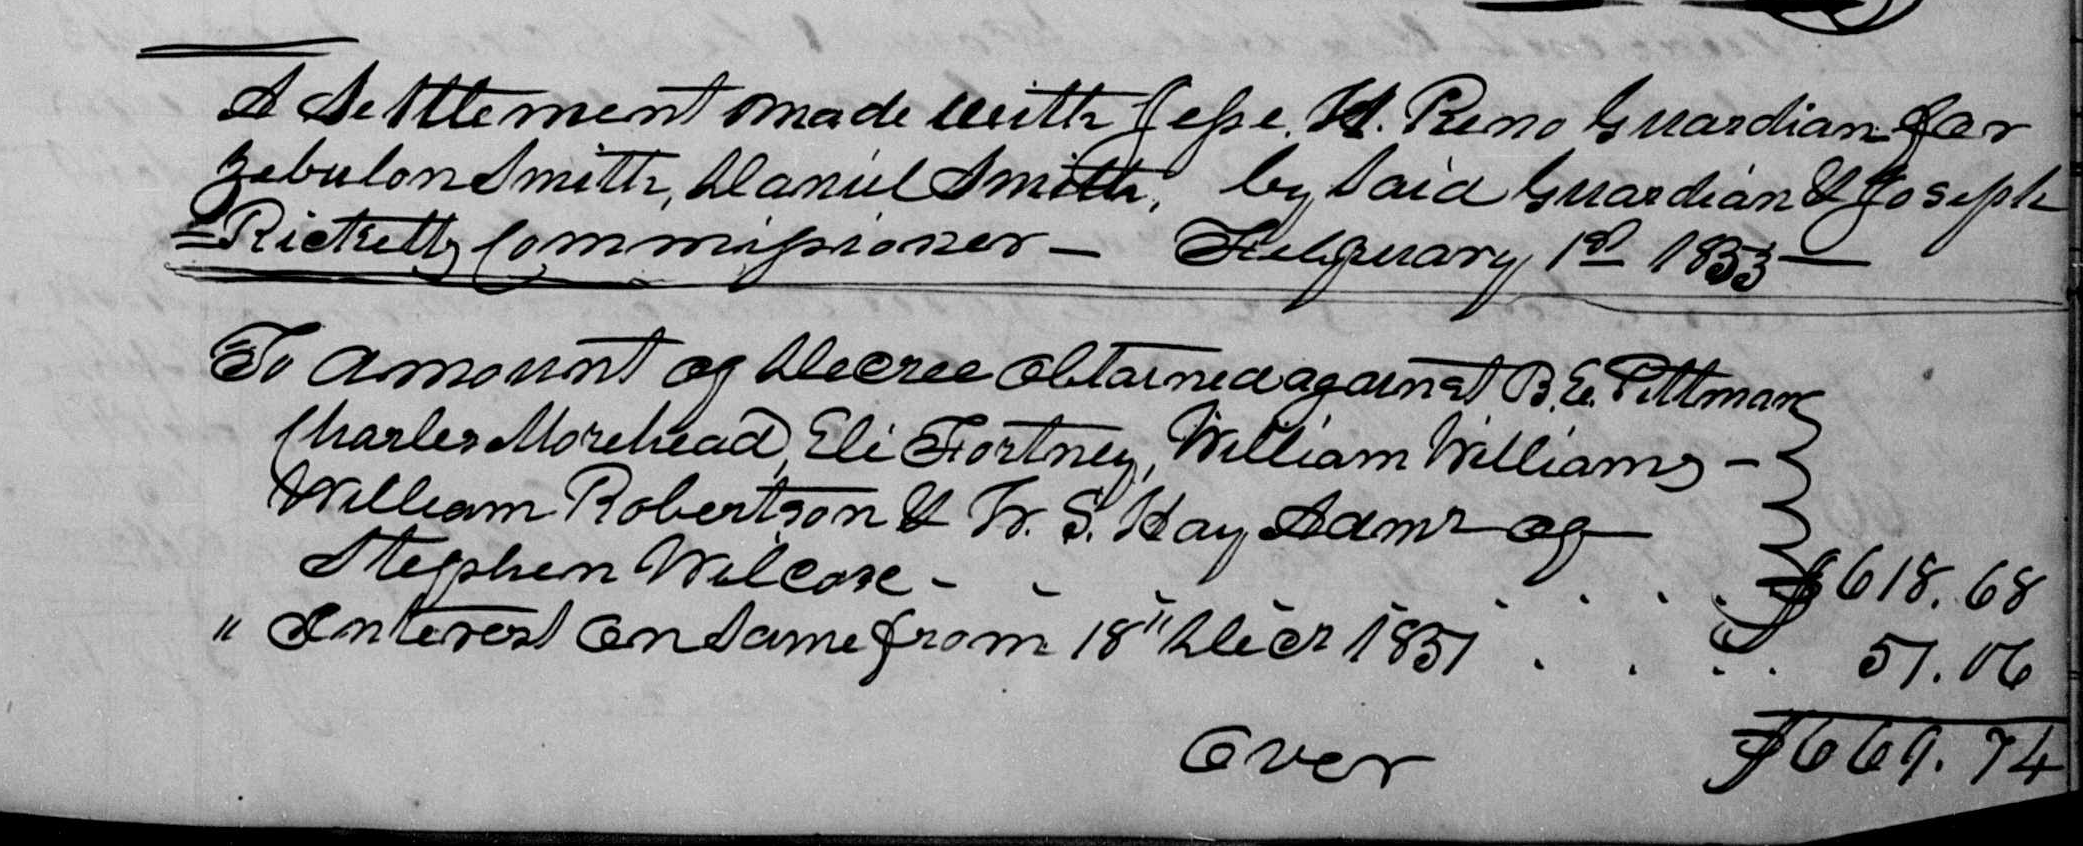 A Settlement made with Jesse. H. Reno Guardian for
Zebulon Smith, Daniel Smith, by Said Guardian & Joseph
=Ricketts Commissioner — February 1st 1833 —
To amount of Decree obtained against B. E. Pittman
Charles Morehead, Eli Fortney, William Williams -
William Robertson & W. S. Hay Admr of
Stephen Wilcox - - . . . . . . . . $618.68
" Interest on Same from 18" Decr 1831 . . . . 51.06
Over $669.74